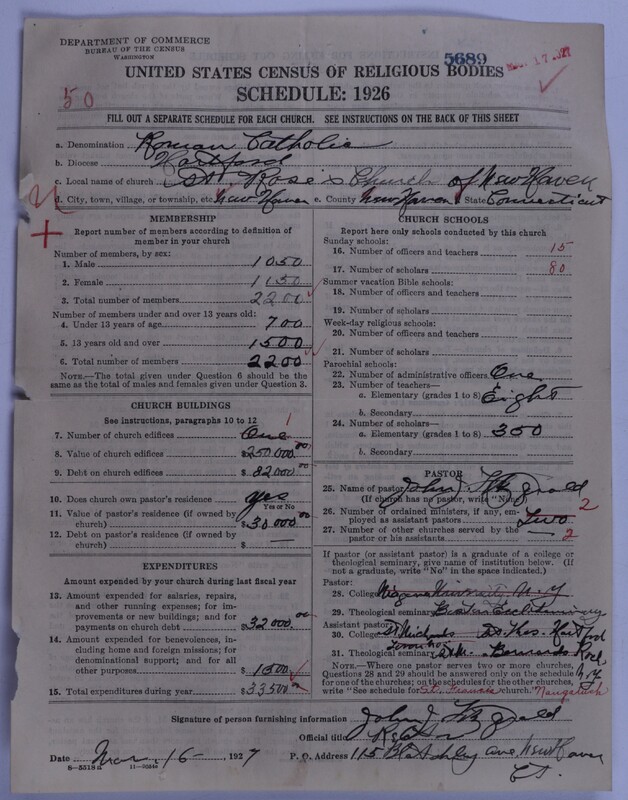 DEPARTMENT OF COMMERCE
BUREAU OF THE CENSUS
WASHINGTON
5689
UNITED STATES CENSUS OF RELIGIOUS BODIES
50
SCHEDULE: 1926
FILL OUT A SEPARATE SCHEDULE FOR EACH CHURCH. SEE INSTRUCTIONS ON THE BACK OF THIS SHEET
a. Denomination Roman Catholic
b. Diocese Hartford
c. Local name of church St. Rose's Church of New Haven
d. City, town, village, or township, etc. New Haven e. County New Haven f. State Connecticut
MEMBERSHIP
Report number of members according to definition of
member in your church
Number of members, by sex:
1. Male 1050
2. Female 1150
3. Total number of members 2200
Number of members under and over 13 years old:
4. Under 13 years of age 700
5. 13 years old and over 1500
6. Total number of members 2200
NOTE.—The total given under Question 6 should be the
same as the total of males and females given under Question 3.
CHURCH BUILDINGS
See instructions, paragraphs 10 to 12
7. Number of church edifices One 1
8. Value of church edifices $ 250 000.00
9. Debt on church edifices $ 82000.00
10. Does church own pastor's residence yes
Yes or No
11. Value of pastor's residence (if owned by
church) $ 30 000.00
12. Debt on pastor's residence (if owned by
church) $ —
EXPENDITURES
Amount expended by your church during last fiscal year
13. Amount expended for salaries, repairs,
and other running expenses; for im-
provements or new buildings; and for
payments on church debt $ 32 000.00
14. Amount expended for benevolences, in-
cluding home and foreign missions; for
denominational support; and for all
other purposes $ 1500
15. Total expenditures during year $ 33500
CHURCH SCHOOLS
Report here only schools conducted by this church
Sunday schools:
16. Number of officers and teachers 15
17. Number of scholars 80
Summer vacation Bible schools:
18. Number of officers and teachers
19. Number of scholars
Week-day religious schools:
20. Number of officers and teachers
21. Number of scholars
Parochial schools:
22. Number of administrative officers One
23. Number of teachers—
a. Elementary (grades 1 to 8) Eight
b. Secondary
24. Number of scholars—
a. Elementary (grades 1 to 8) 350
b. Secondary
PASTOR
25. Name of pastor John J. Fitzgerald
(If church has no pastor, write "None")
26. Number of ordained ministers, if any, em-
ployed as assistant pastors Two 2
27. Number of other churches served by the
pastor or his assistants — 2
If pastor (or assistant pastor) is a graduate of a college or
theological seminary, give name of institution below. (If
not a graduate, write "No" in the space indicated.)
Pastor:
28. College Niagara University N.Y
29. Theological seminary Boston Eccl. Seminary
Assistant pastor:
30. College St Michaels St Thos. Hartford
Toronto
31. Theological seminary St. Bernards Roch
N.Y.
NOTE.—Where one pastor serves two or more churches,
Questions 28 and 29 should be answered only on the schedule
for one of the churches; on the schedules for the other churches,
write "See schedule for St. Francis church." Naugatuck
Signature of person furnishing information John J. Fitzgerald
Official title Rector
Date Mar. 16 - , 1927 P. O. Address 115 Blatchley ave, New Haven
Ct.
8—5318a 11—